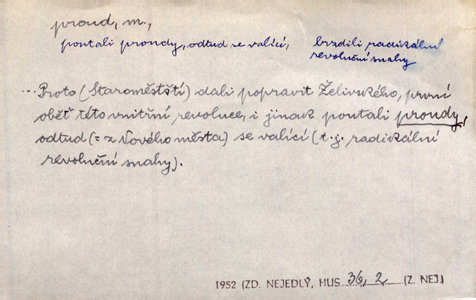 proud, m.,
poutali proudy, odtud se valící, brzdili radikální
revoluční snahy
... Proto (Staroměstští) dali popravit Želivského, první
oběť této vnitřní revoluce, i jinak poutali proudy,
odtud (= z Nového města) se valící (t.j. radikální
revoluční snahy).
1952 (ZD. NEJEDLÝ, HUS. 36, 2 (Z. NEJ.)